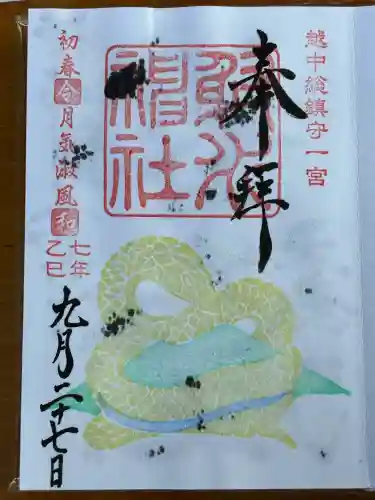 越中総鎮守一宮
奉拝
射水神社
初春令月気淑風和
乙巳七年
九月二十七日